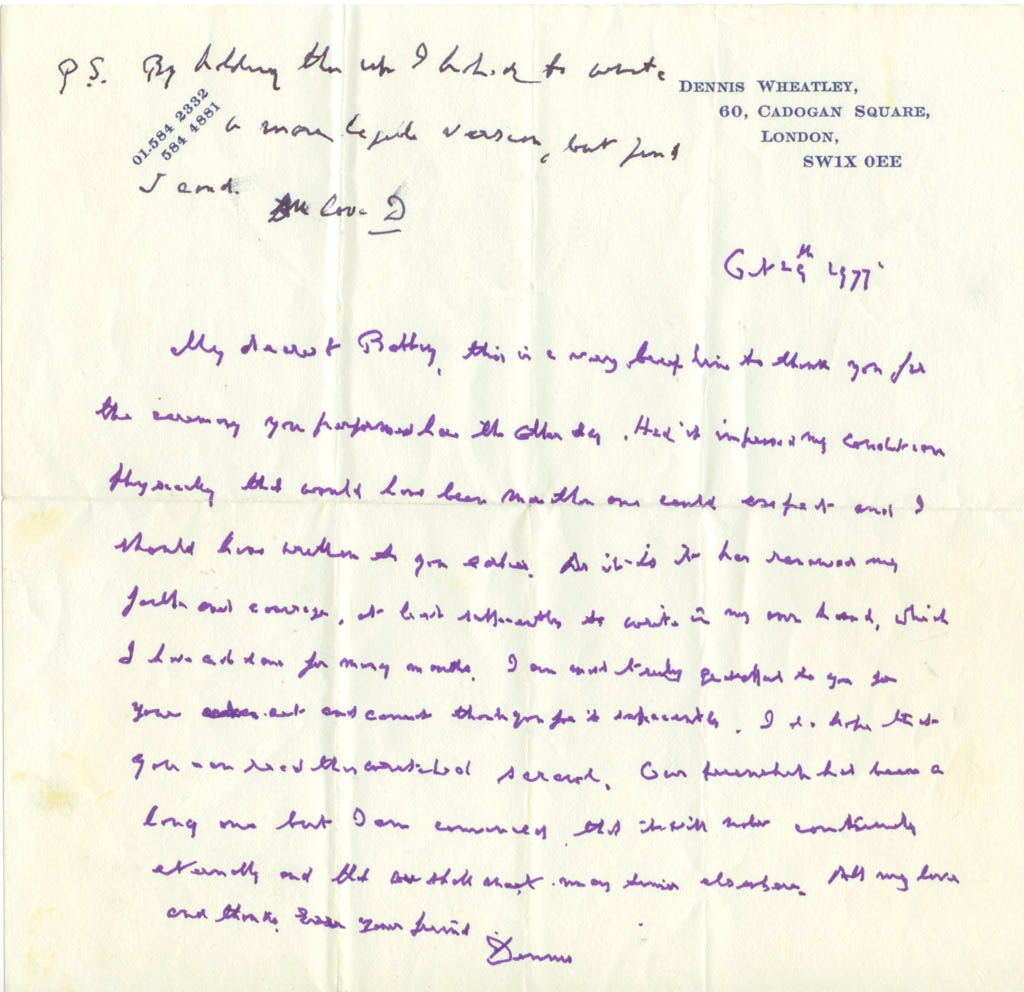 P.S. By holding this up I hoped to write
a more legible version, but find
I can't.
love D
01-584 2332
584 4881
DENNIS WHEATLEY,
60, CADOGAN SQUARE,
LONDON,
SW1X 0EE
Oct 29th 1977
My dearest Bobby, this is a very brief line to thank you for
the ceremony you performed here the other day. Had it improved my condition
physically that would have been more than one could expect and I
should have written to you earlier. As it is it has renewed my
faith and courage, at least sufficiently to write in my own hand, which
I have not done for many months. I am most truly grateful to you for
your act and cannot thank you for it sufficiently. I do hope that
you can read this wretched scrawl. Our friendship has been a
long one but I am convinced that it will now continue
eternally and that we shall meet many times elsewhere. All my love
and thanks. Ever your friend
Dennis